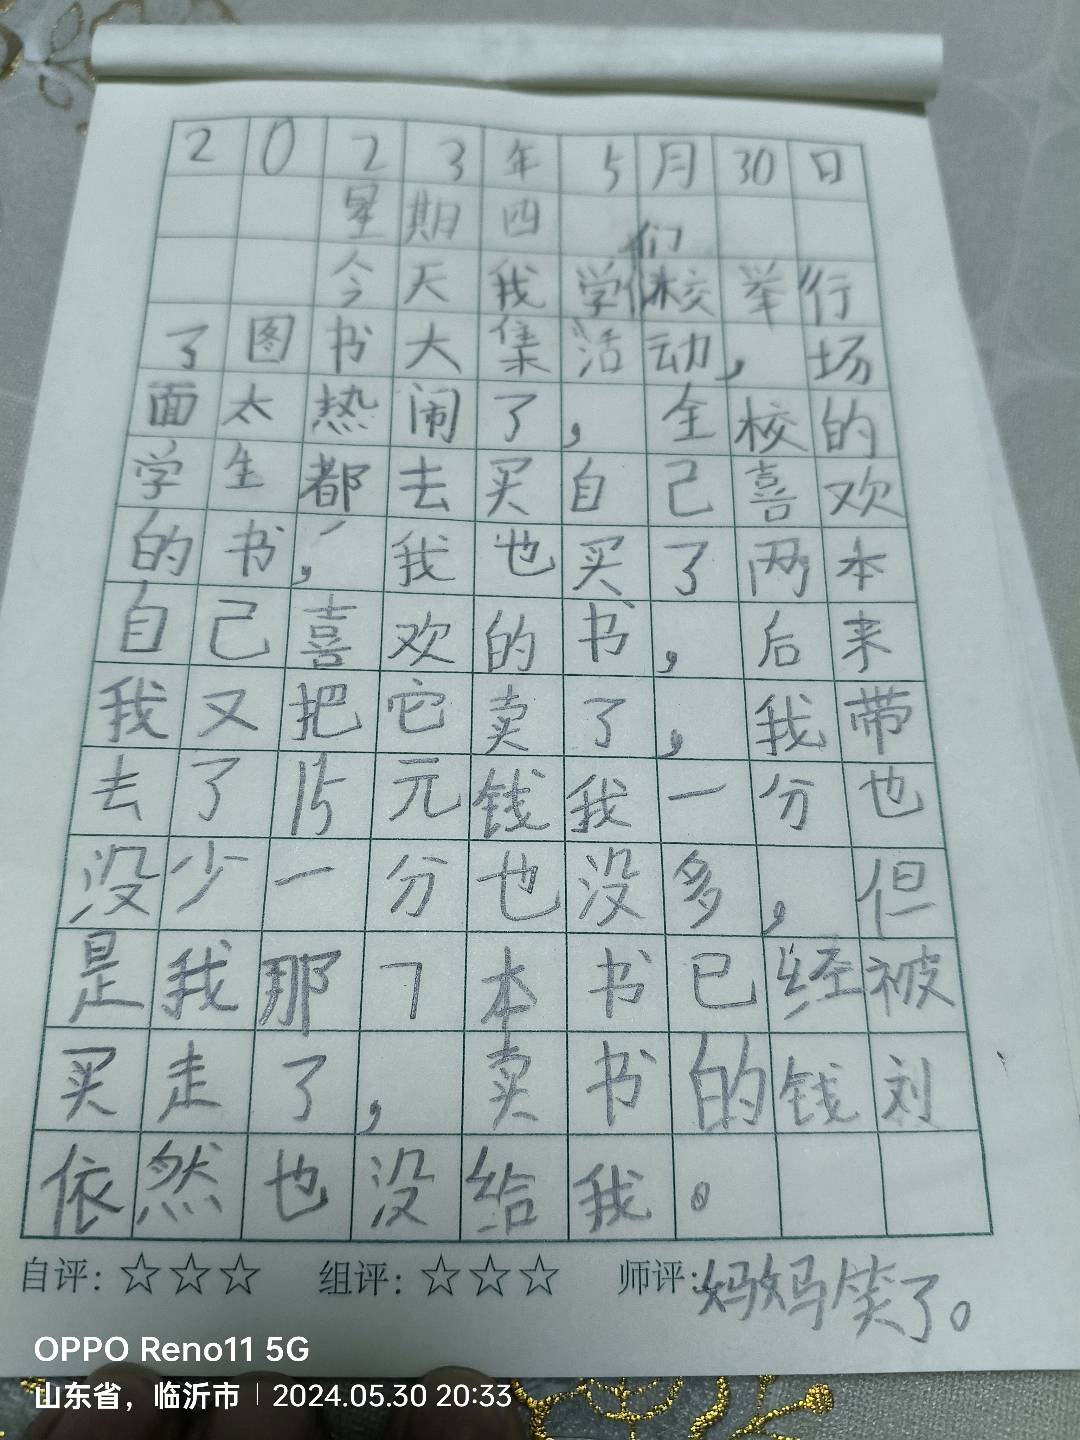 2023年5月30日
星期四
今天我们学校举行
了图书大集活动，场
面太热闹了，全校的
学生都去买自己喜欢
的书，我也买了两本
自己喜欢的书，后来
我又把它卖了，我带
去了15元钱我一分也
没少一分也没多，但
是我那7本书已经被
买走了，卖书的钱刘
依然也没给我。
自评：☆☆☆ 组评：☆☆☆ 师评：妈妈笑了。
OPPO Reno11 5G
山东省，临沂市 | 2024.05.30 20:33